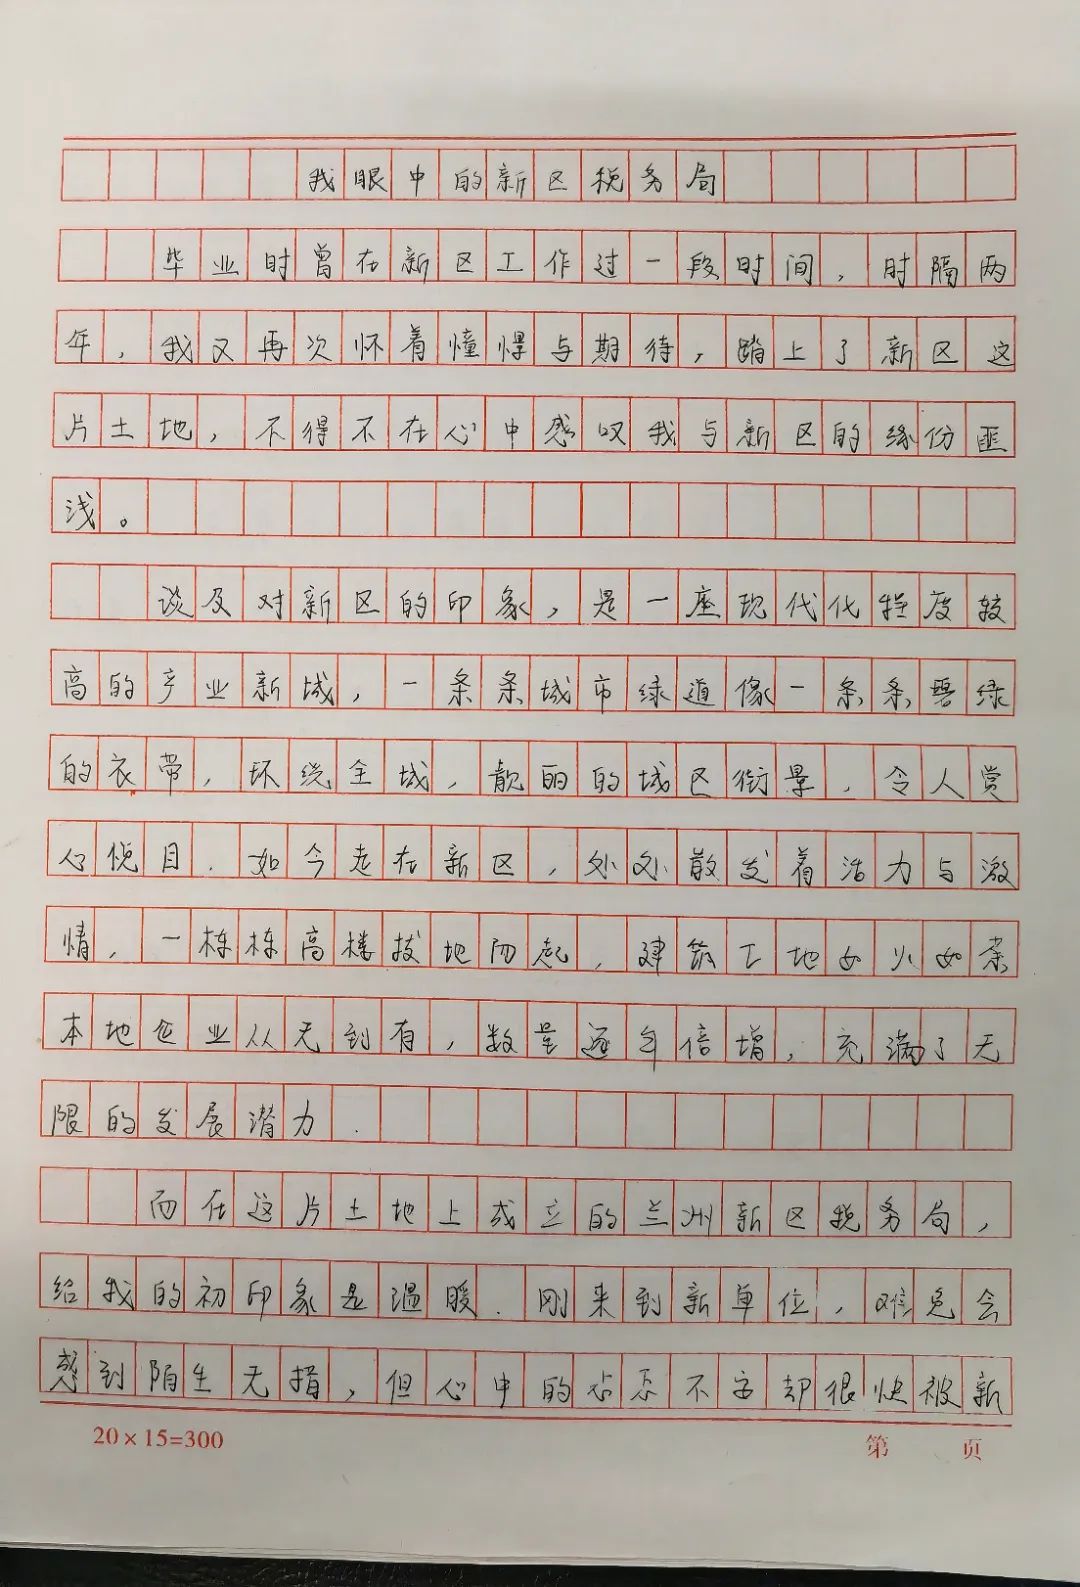 我眼中的新区税务局
毕业时曾在新区工作过一段时间，时隔两
年，我又再次怀着憧憬与期待，踏上了新区这
片土地，不得不在心中感叹我与新区的缘份匪
浅。
谈及对新区的印象，是一座现代化程度较
高的产业新城，一条条城市绿道像一条条碧绿
的衣带，环绕全城，靓丽的城区街景，令人赏
心悦目.如今走在新区，处处散发着活力与激
情，一栋栋高楼拔地而起，建筑工地如火如荼
本地企业从无到有，数量逐年倍增，充满了无
限的发展潜力.
而在这片土地上成立的兰州新区税务局，
给我的初印象是温暖.刚来到新单位，难免会
感到陌生无措，但心中的忐忑不安却很快被新
20×15=300
第 页